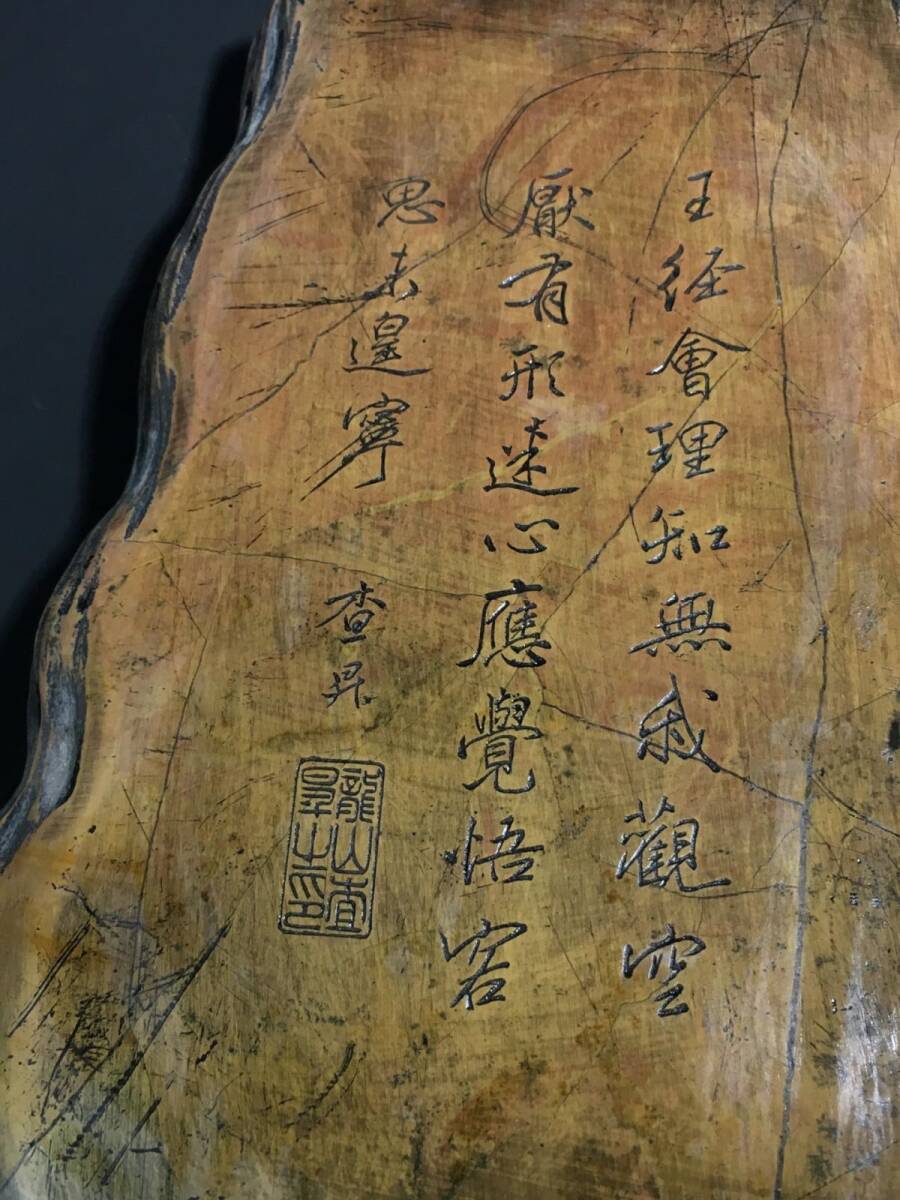 王經會理知無我觀空
厭有形迷心應覺悟客
思未遑寧
查昇
龍山查
昇之印